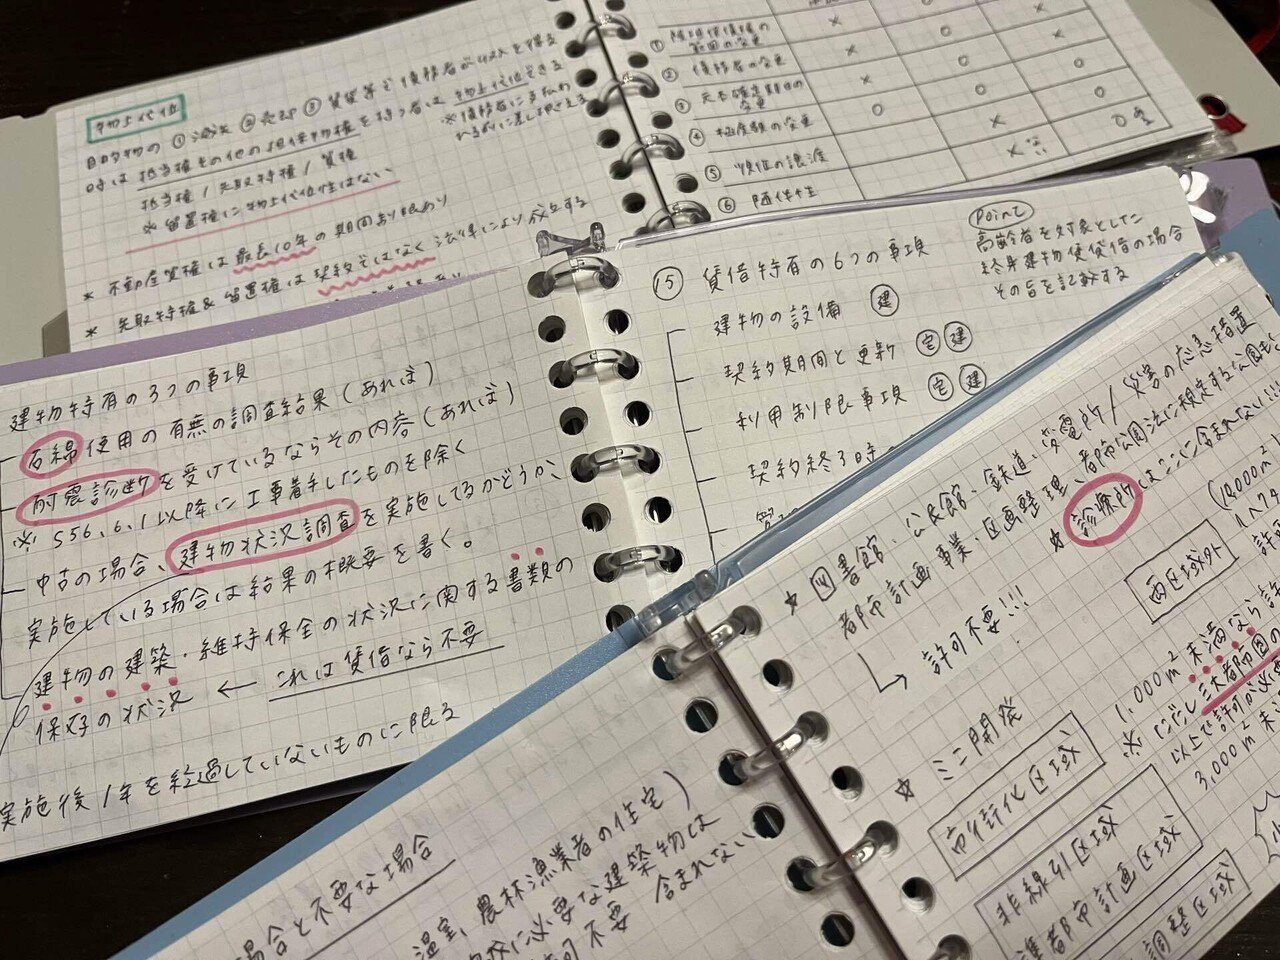 物上代位
目的物の ①滅失 ②売却 ③賃貸等で債務者が収入を得る
時は 抵当権その他の担保物権を持つ者は 物上代位できる
抵当権/先取特権/質権
※債務者に支払わ
れる前に差し押さえる
※留置権に物上代位性はない
* 不動産質権は最長10年の期間あり
* 先取特権&留置権は契約ではなく法律により成立する
① 被担保債権の
範囲の変更
× ○ ○
② 債務者の変更
× ○ ×
③ 元本確定期日の
変更
× ○ ×
④ 極度額の変更
○ ○ ○
⑤ 順位の譲渡
×
⑥ 随伴性
建物特有の3つの事項
石綿使用の有無の調査結果(あれば)
耐震診断を受けているならその内容(あれば)
※ S56.6.1以降に工事着手したものを除く
中古の場合、建物状況調査を実施してるかどうか、
実施している場合は結果の概要を書く。
建物の建築・維持保全の状況に関する書類の
保存の状況 ← これは賃借なら不要
実施後1年を経過していないものに限る
⑮ 賃借特有の6つの事項
建物の設備 建
契約期間と更新 宅 建
利用制限事項 宅 建
契約終了時
Point
高齢者を対象とした
終身建物賃貸借の場合
その旨を記載する
場合と不要な場合
温室、農林漁業者の住宅)
に必要な建築物は
許可不要 含まれない
★ 図書館、公民館、鉄道、変電所/災害の応急措置
都市計画事業、区画整理、都市公園法に規定する公園
→ 許可不要!!!
☆ 診療所はここに含まれない!!!
★ ミニ開発
市街化区域
1,000m² 未満なら許
※ ただし三大都市圏の
以上で許可が必要
非線引区域
準都市計画区域
3,000m² 未
調整区域
両区域外
(10,000m²